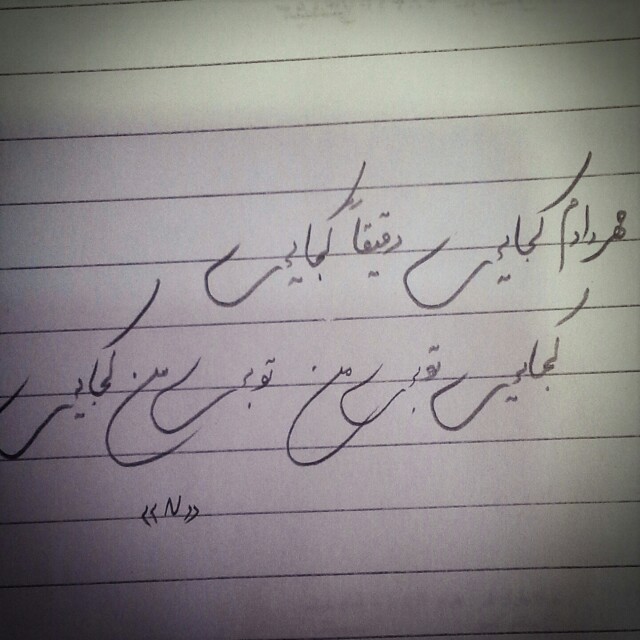 مهردادم کجایی دقیقاً کجایی
کجایی تو بی من تو بی من کجایی
«N»